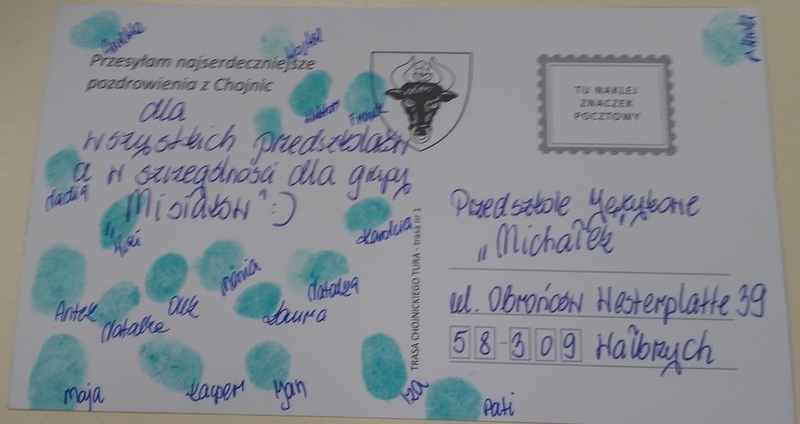 Przesyłam najserdeczniejsze
pozdrowienia z Chojnic
dla
wszystkich przedszkolaków
a w szczególności dla grupy
„Misiaków” :)
TU NAKLEJ
ZNACZEK
POCZTOWY
Przedszkole Językowe
„Michałek”
ul. Obrońców Westerplatte 39
58-309 Wałbrzych
TRASA CHOJNICKIEGO TURA - trasa nr 1
Wojtek
Franek
Nadia
Karolcia
Antek
Natalka
Olek
Mania
Laura
Natalia
Maja
Kacper
Jan
Iza
Pati